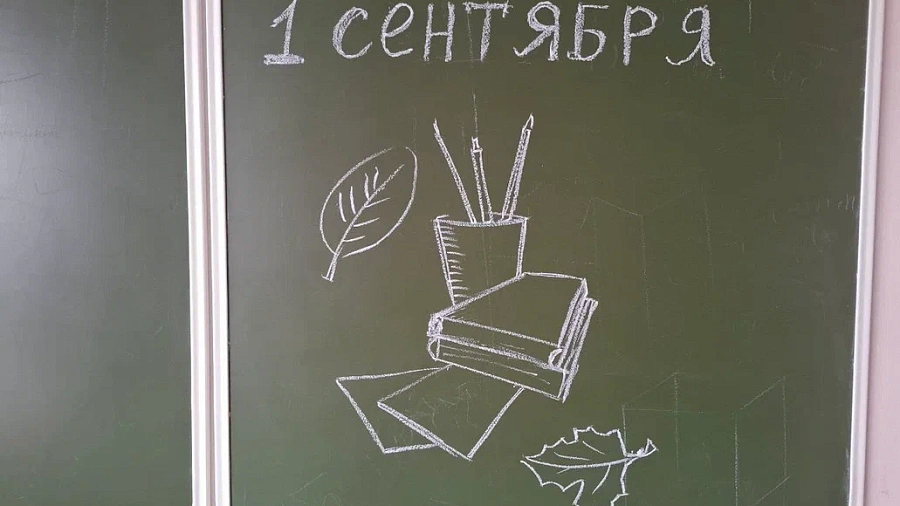 1 сентября